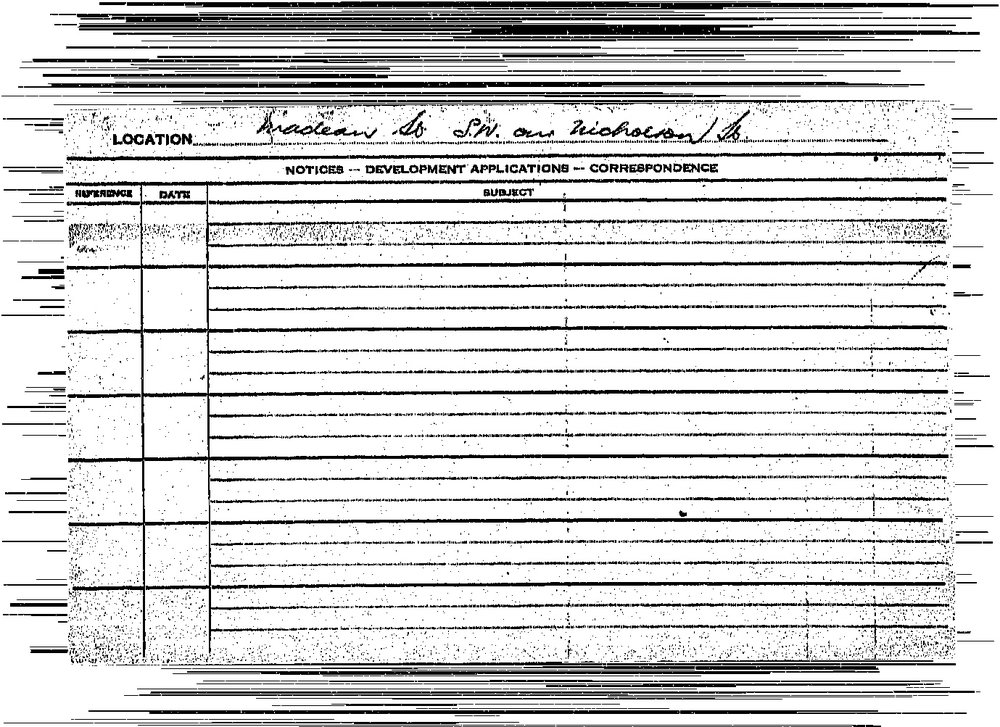 LOCATION Madean St S.W. cor Nicholson St.
NOTICES — DEVELOPMENT APPLICATIONS — CORRESPONDENCE
REFERENCE DATE SUBJECT